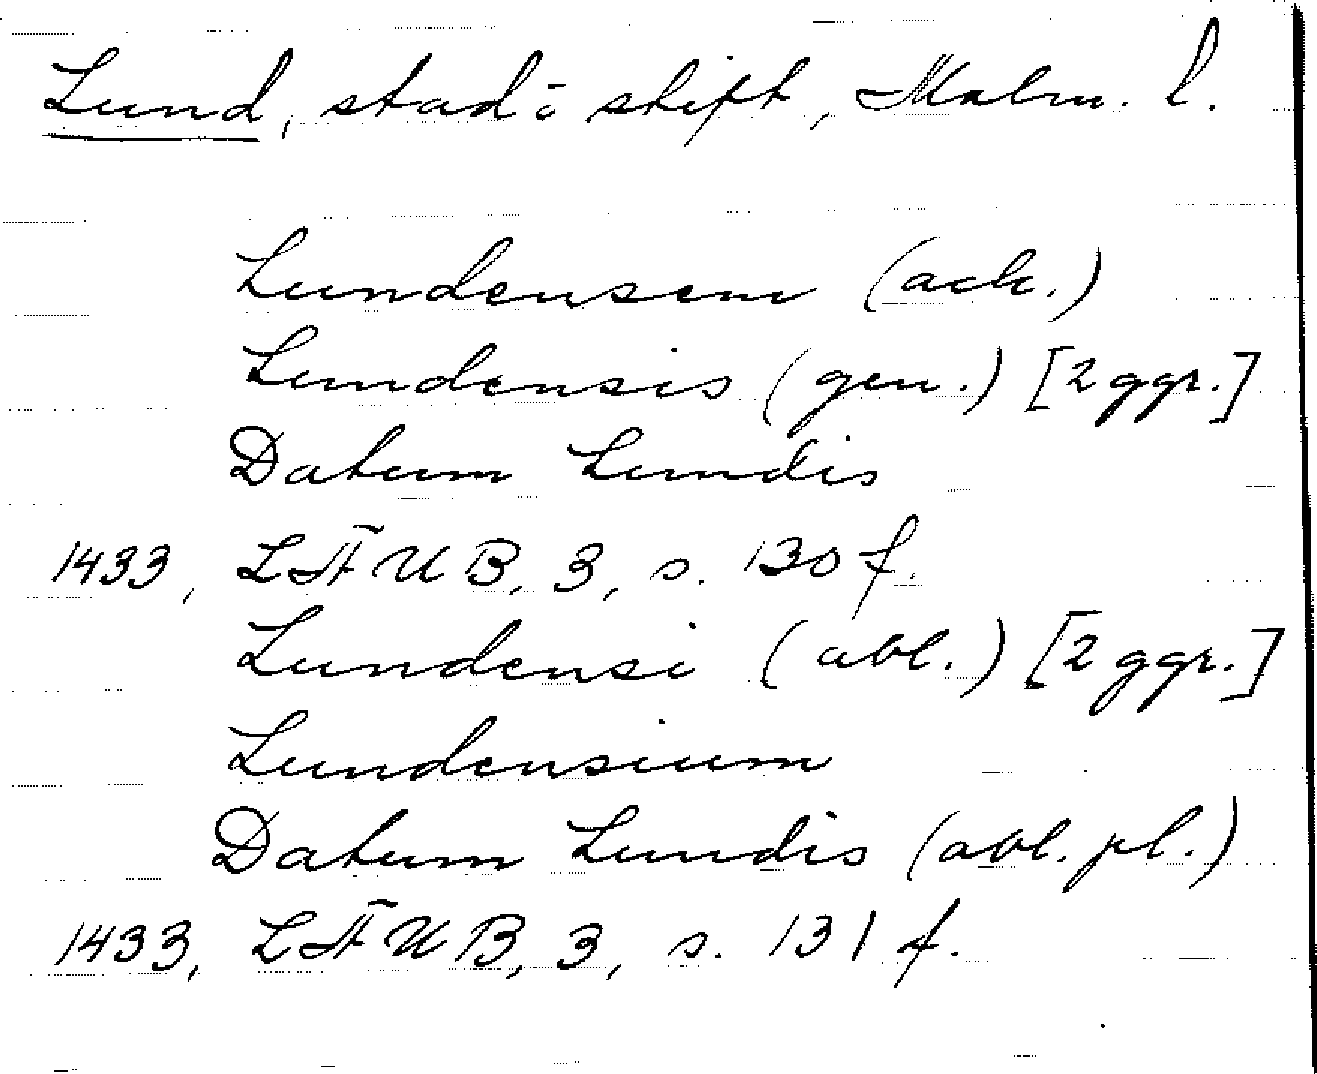 Lund, stad o. stift, Malm. l.
Lundensem (ack.)
Lundensis (gen.) [2 ggr.]
Datum Lundis
1433, LÄUB, 3, s. 130 f.
Lundensi (abl.) [2 ggr.]
Lundensium
Datum Lundis (abl. pl.)
1433, LÄUB, 3, s. 131 f.